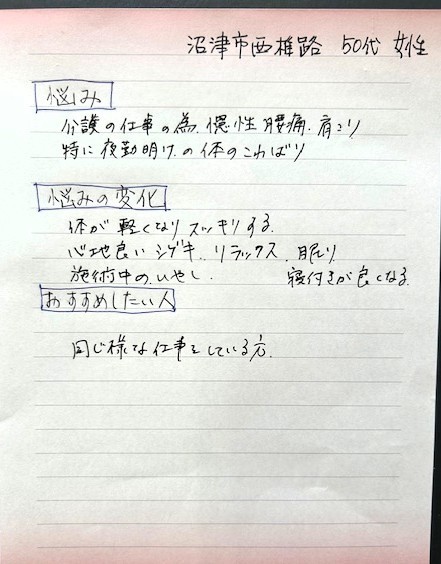 沼津市西椎路 50代 女性
悩み
介護の仕事の為、慢性腰痛、肩こり
特に夜勤明けの体のこわばり
悩みの変化
体が軽くなりスッキリする。
心地良いシゲキ、リラックス、眠り
施術中のいやし、 寝付きが良くなる。
おすすめしたい人
同じ様な仕事をしている方。